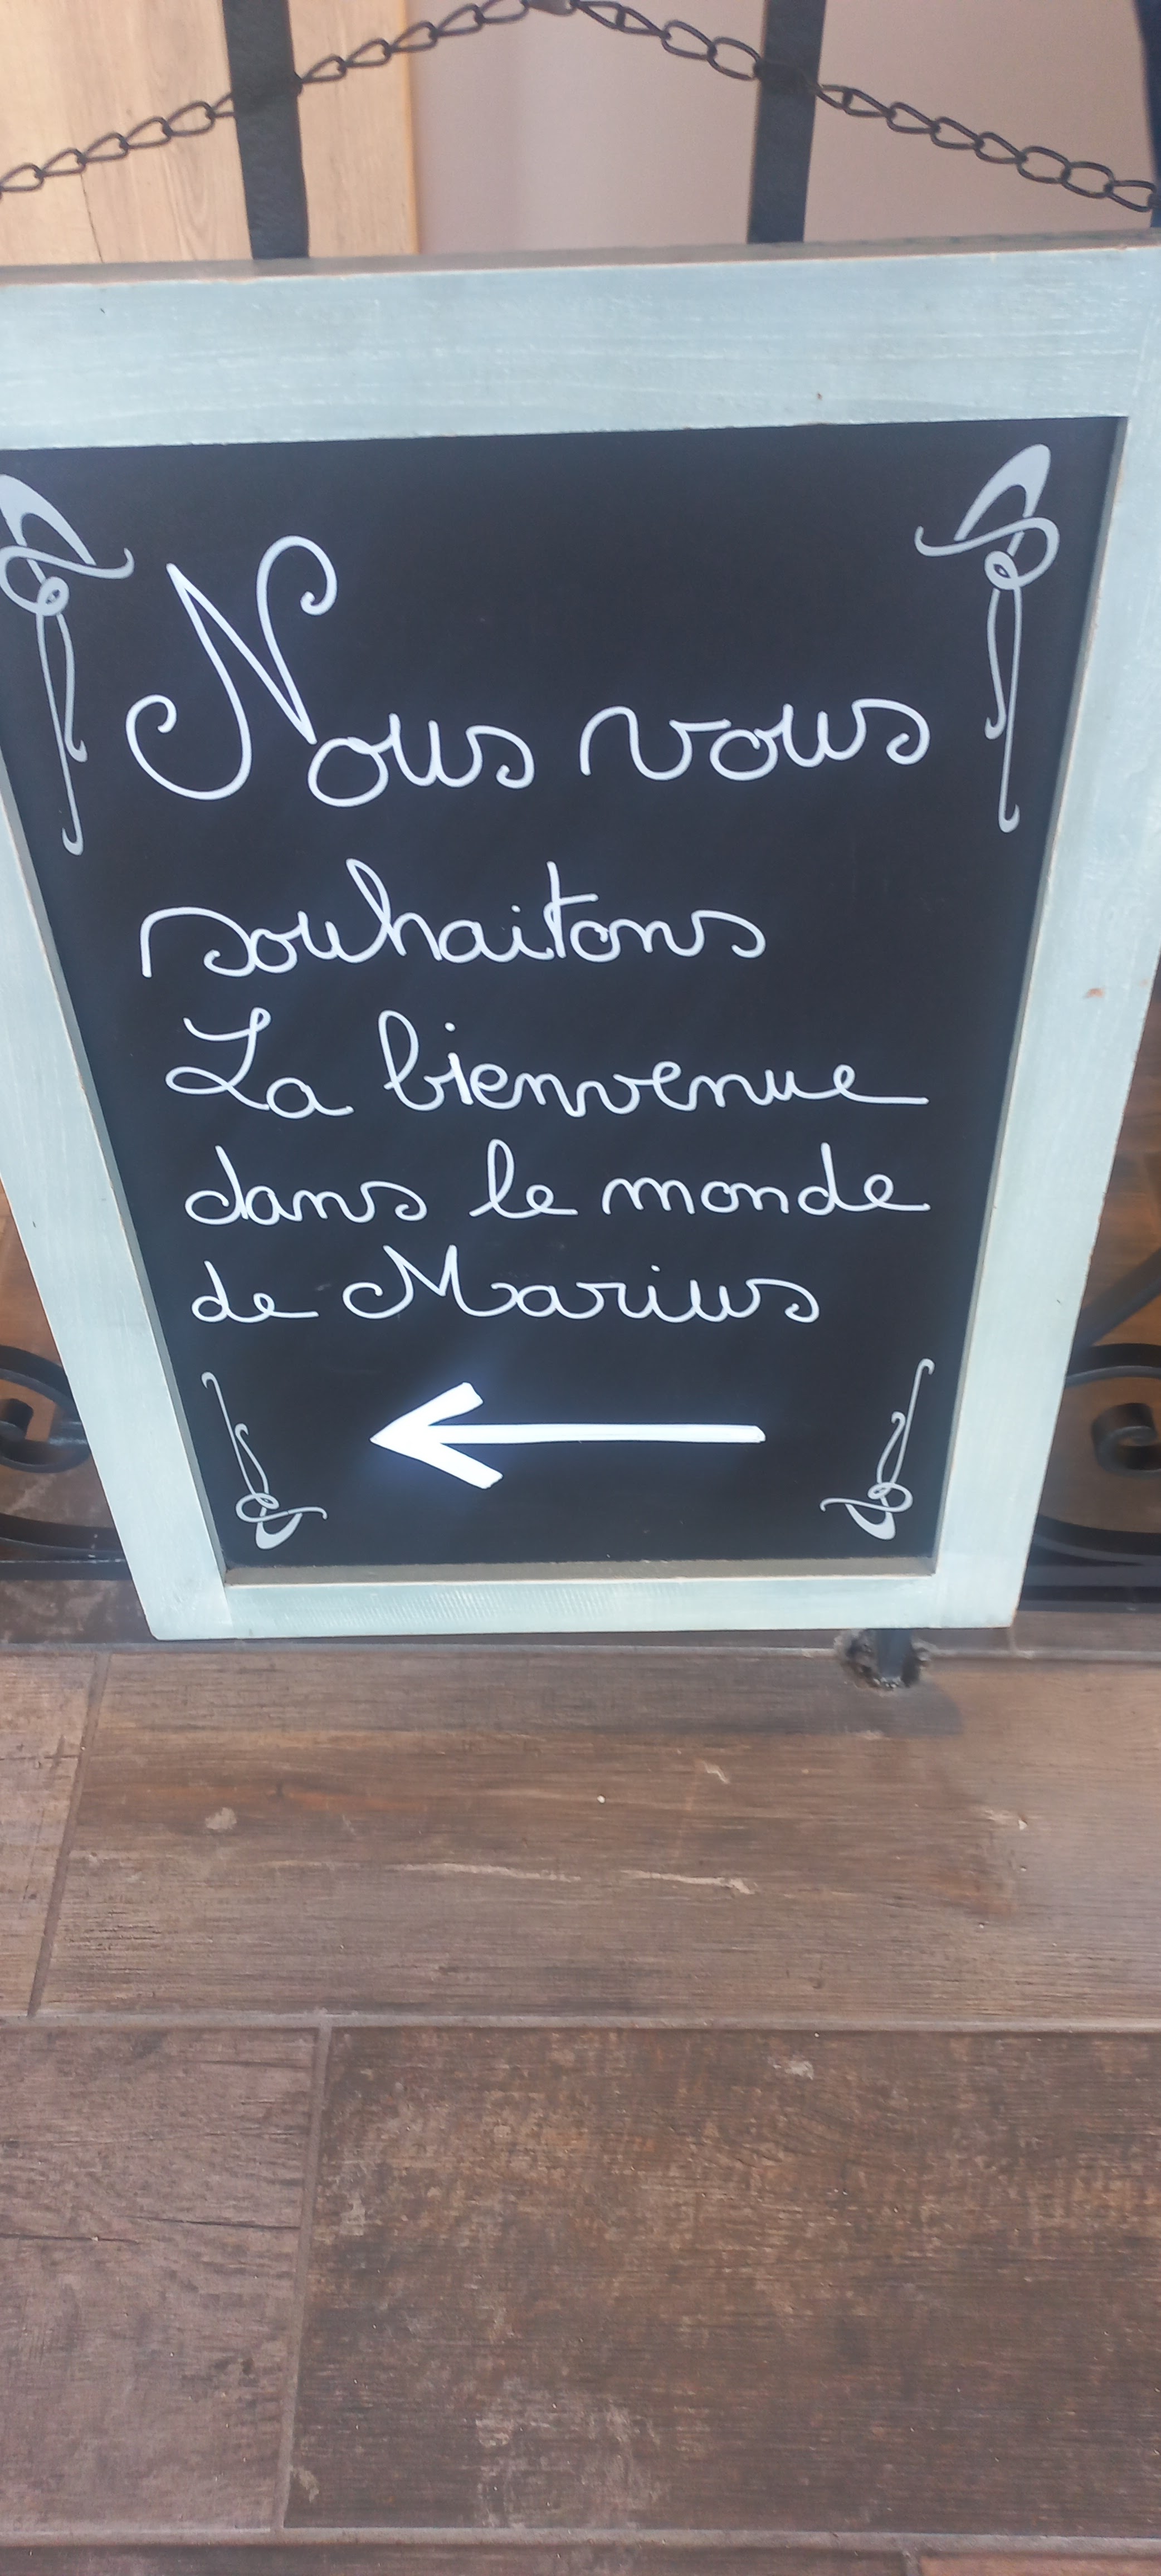 Nous vous
souhaitons
La bienvenue
dans le monde
de Marius